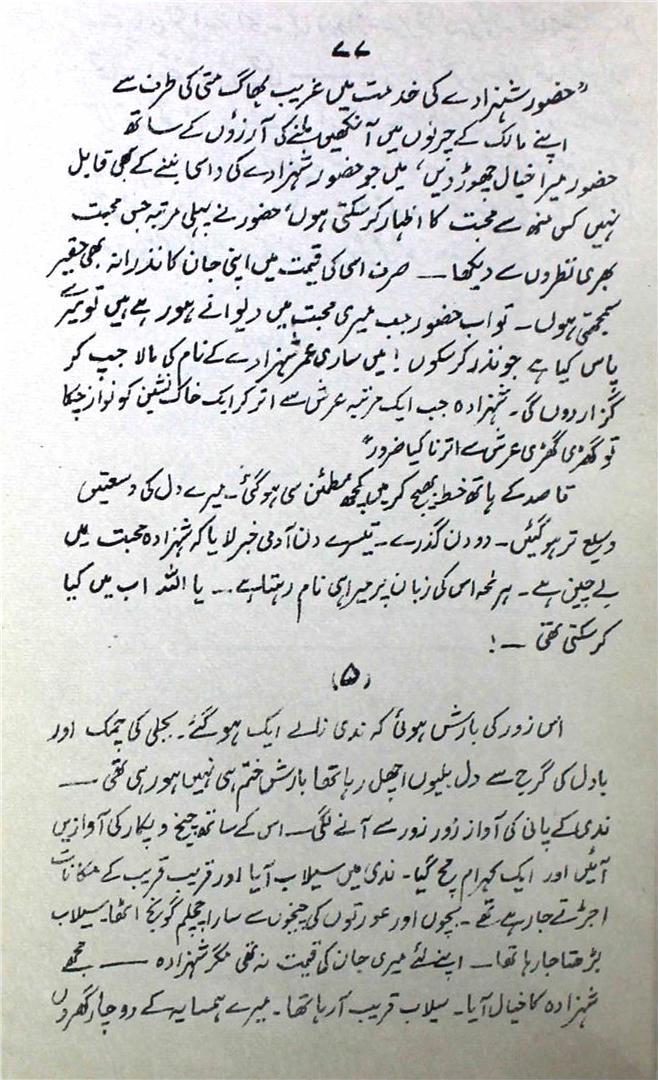 ۷۷
"حضور شہزادے کی خدمت میں غریب بھاگ متی کی طرف سے
اپنے مالک کے چرنوں میں آنکھیں ملنے کی آرزوؤں کے ساتھ
حضور میرا خیال چھوڑ دیں، میں جو حضور شہزادے کی داسی بننے کے بھی قابل
نہیں کس منھ سے محبت کا اظہار کر سکتی ہوں، حضور نے پہلی مرتبہ جس محبت
بھری نظروں سے دیکھا ــ صرف اسی کی قیمت میں اپنی جان کا نذرانہ بھی حقیر
سمجھتی ہوں۔ تو اب حضور جب میری محبت میں دیوانے ہو رہے ہیں تو میرے
پاس کیا ہے جو نذر کر سکوں! میں ساری عمر شہزادے کے نام کی مالا جپ کر
گزار دوں گی۔ شہزادہ جب ایک مرتبہ عرش سے اتر کر ایک خاک نشین کو نواز چکا
تو گھڑی گھڑی عرش سے اترنا کیا ضرور"
قاصد کے ہاتھ خط بھیج کر میں کچھ مطمئن سی ہو گئی۔ میرے دل کی وسعتیں
وسیع تر ہو گئیں۔ دو دن گذرے۔ تیسرے دن آدمی خبر لایا کہ شہزادہ محبت میں
بے چین ہے۔ ہر لمحہ اس کی زبان پر میرا ہی نام رہتا ہے ۔۔ یا اللہ اب میں کیا
کر سکتی تھی ــ!
(۵)
اس زور کی بارش ہوئی کہ ندی نالے ایک ہو گئے۔ بجلی کی چمک اور
بادل کی گرج سے دل بلیوں اچھل رہا تھا بارش ختم ہی نہیں ہو رہی تھی ــ
ندی کے پانی کی آواز زور زور سے آنے لگی ــ اس کے ساتھ چیخ و پکار کی آوازیں
آئیں اور ایک کہرام مچ گیا۔ ندی میں سیلاب آیا اور قریب قریب کے مکانات
اجڑتے جا رہے تھے۔ بچوں اور عورتوں کی چیخوں سے سارا چچلم گونج اٹھا۔ سیلاب
بڑھتا جا رہا تھا ــ اپنے لئے میری جان کی قیمت نہ تھی مگر شہزادہ ــــ مجھے
شہزادہ کا خیال آیا۔ سیلاب قریب آ رہا تھا۔ میرے ہمسایہ کے دو چار گھروں